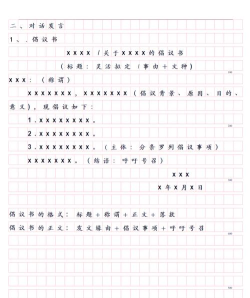 二、对话发言
1、.倡议书
xxxx/关于xxxx的倡议书
(标题：灵活拟定/事由+文种)
xxx：(称谓)
xxxxxxx，xxxxxxx(倡议背景、原因、目的、
意义)，现倡议如下：
1.xxxxxxxx。
2.xxxxxxxx。
3.xxxxxxxx。(主体：分条罗列倡议事项)
xxxxxxx。(结语：呼吁号召)
xxx
x年x月x日
倡议书的格式：标题+称谓+正文+落款
倡议书的正文：发文缘由+倡议事项+呼吁号召